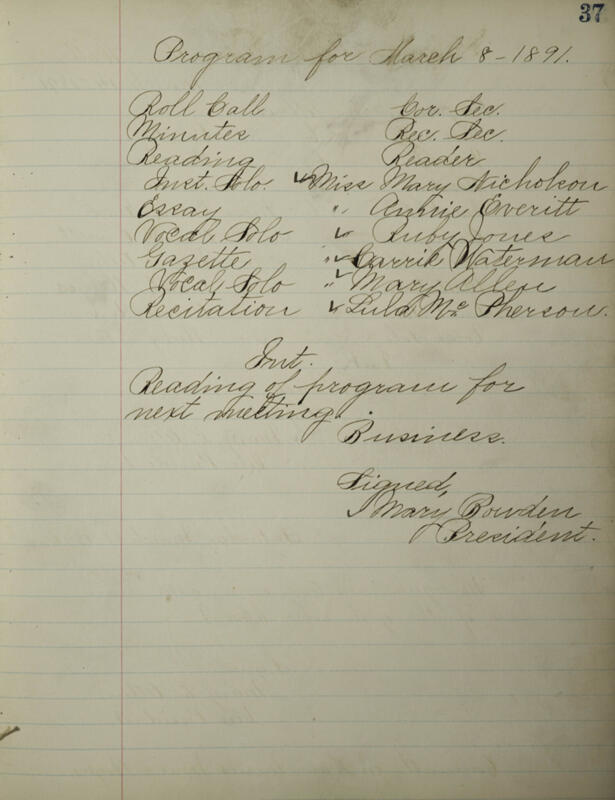 37
Program for March 8-1891.
Roll Call Cor. Sec.
Minutes Rec. Sec.
Reading Reader
Inst. Solo. ✓ Miss Mary Nicholson
Essay " Annie Everitt
Vocal Solo ✓ Ruby Jones
Gazette " ✓ Carrie Waterman
Vocal Solo " ✓ Mary Allen
Recitation ✓ Lula Mc Pherson.
Int.
Reading of program for
next meeting.
Business.
Signed,
Mary Bowden
President.